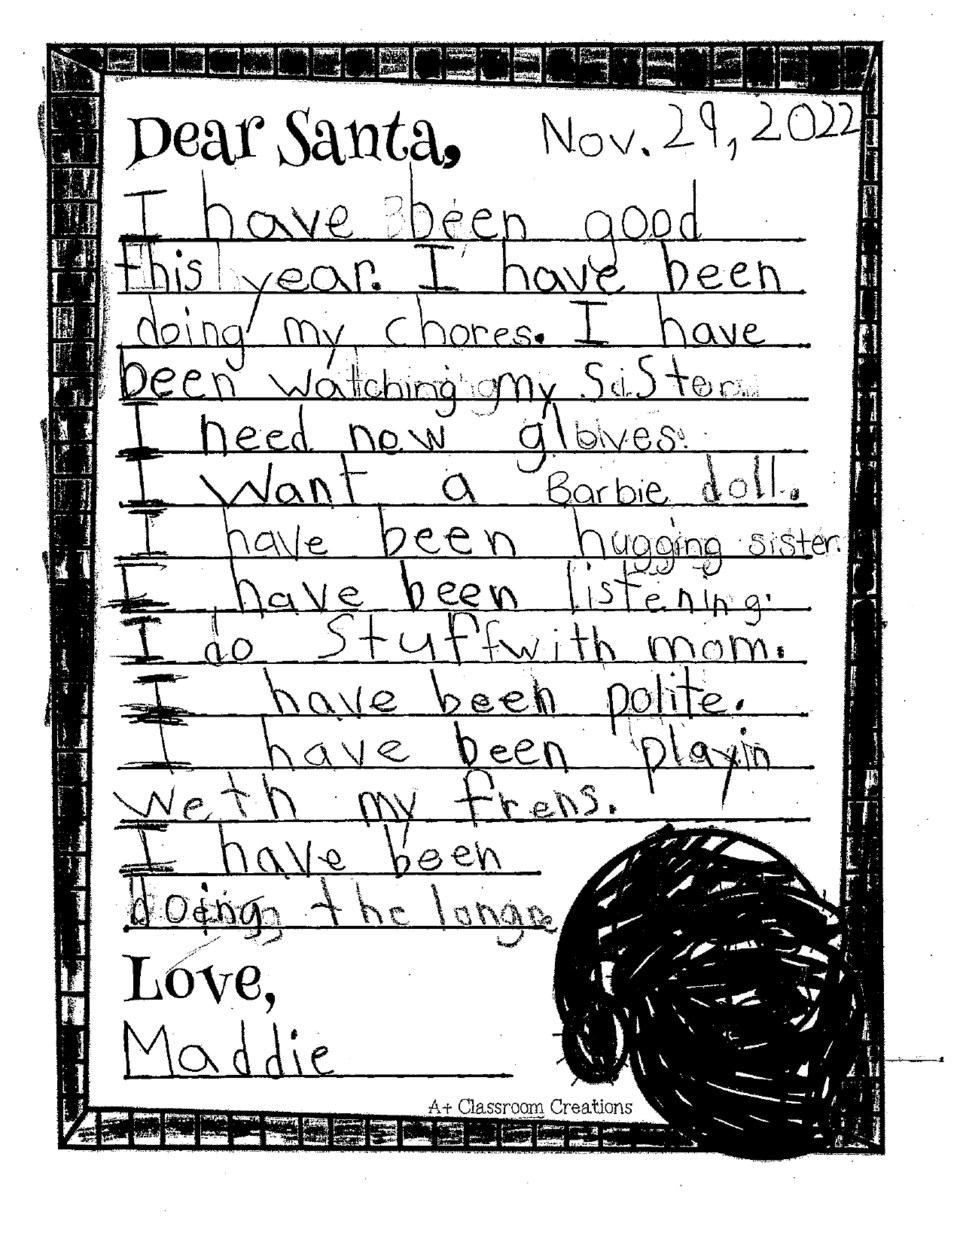 Dear Santa, Nov. 29, 2022
I have been good
this year. I have been
doing my chores. I have
been watching my sister.
I need new gloves.
I want a Barbie doll.
I have been hugging sister.
I have been listening.
I do stuff with mom.
I have been polite.
I have been playin
weth my frens.
I have been
doing the longe
Love,
Maddie
A+ Classroom Creations